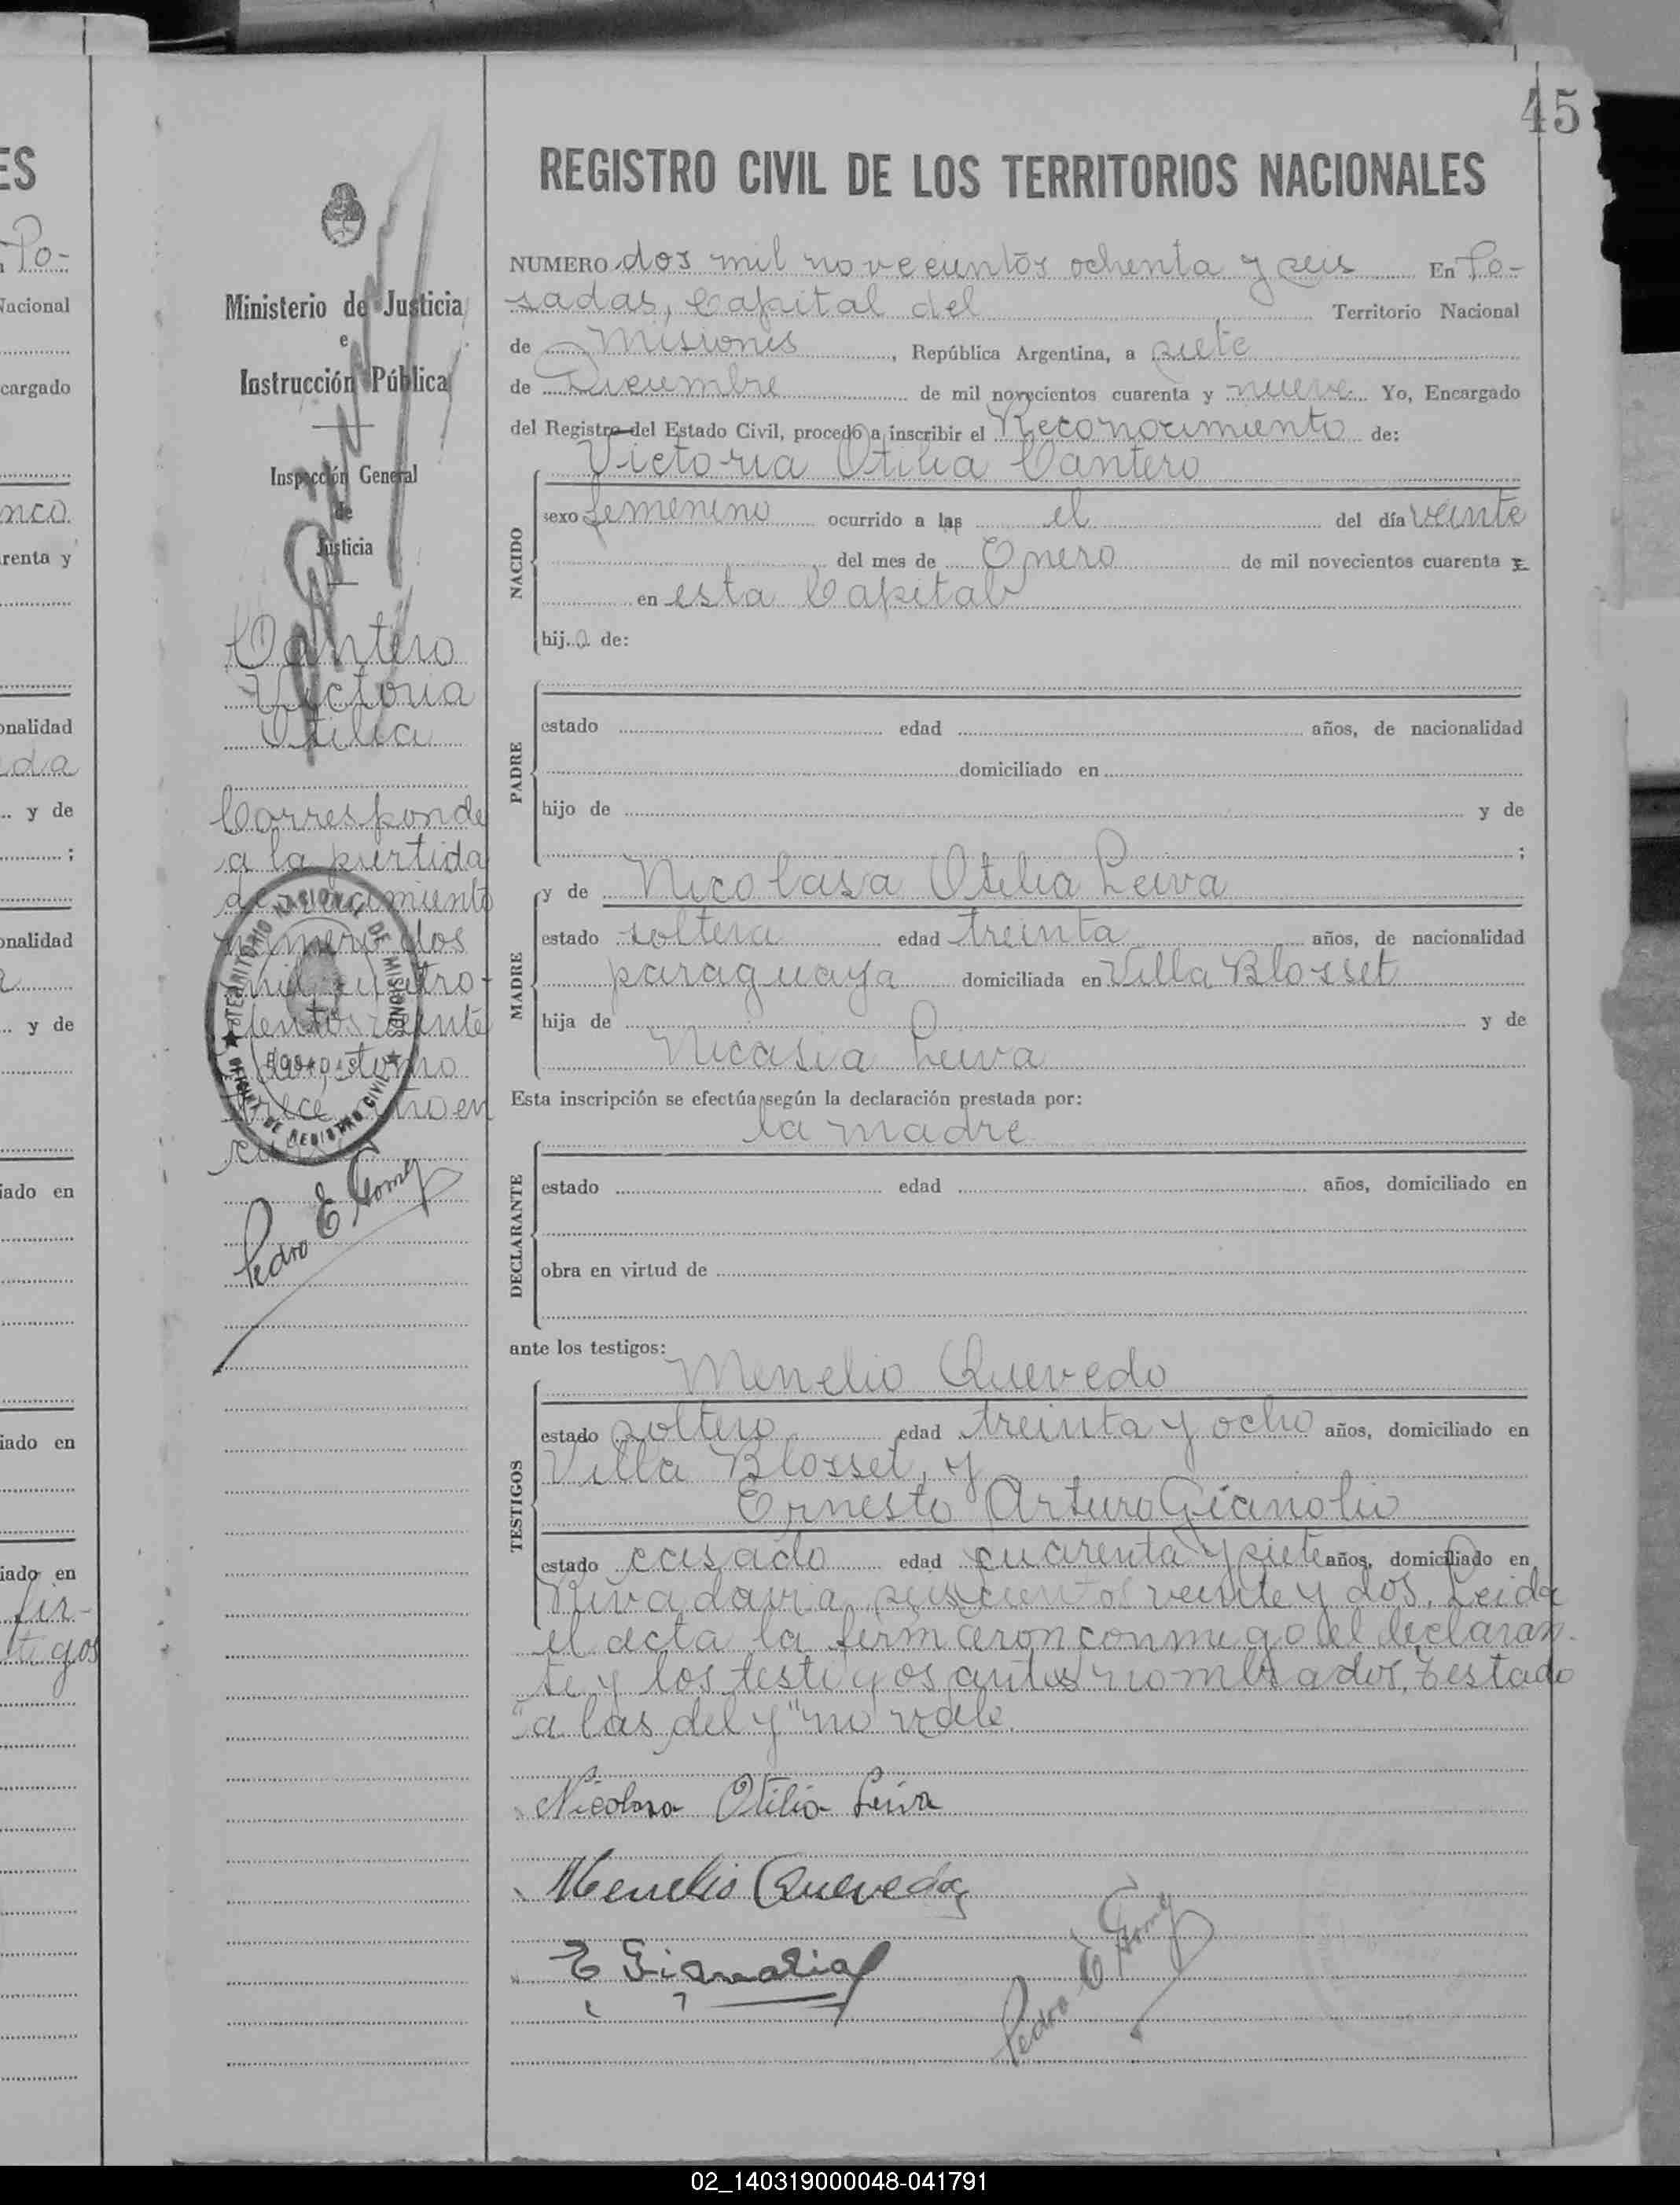 45
REGISTRO CIVIL DE LOS TERRITORIOS NACIONALES
NUMERO dos mil novecientos ochenta y seis En Po-
sadas, Capital del Territorio Nacional
de Misiones, República Argentina, a siete
de Diciembre de mil novecientos cuarenta y nueve Yo, Encargado
del Registro del Estado Civil, procedo a inscribir el Reconocimiento de:
Victoria Otilia Cantero
NACIDO
sexo femenino ocurrido a las el del día veinte
del mes de Enero de mil novecientos cuarenta y
en esta Capital
hija de:
PADRE
estado edad años, de nacionalidad
domiciliado en
hijo de y de
;
MADRE
y de Nicolasa Otilia Leiva
estado soltera edad treinta años, de nacionalidad
paraguaya domiciliada en Villa Blosset
hija de y de
Nicasia Leiva
Esta inscripción se efectúa según la declaración prestada por:
la madre
DECLARANTE
estado edad años, domiciliado en
obra en virtud de
ante los testigos:
Menelio Quevedo
TESTIGOS
estado soltero edad treinta y ocho años, domiciliado en
Villa Blosset, y
Ernesto Arturo Gianolio
estado casado edad cuarenta y siete años, domiciliado en
Rivadavia seiscientos veinte y dos. Leida
el acta la firmaron conmigo el declaran-
te y los testigos antes nombrados. Testado
"a las del y" no vale.
Nicolasa Otilia Leiva
Menelio Quevedo
E Gianolio
Pedro E Gomez
Ministerio de Justicia
e
Instrucción Pública
Inspección General
de
Justicia
Cantero
Victoria
Otilia
Corresponde
a la partida
de nacimiento
número dos
mil cuatro-
cientos veinte
tomo
trece
TERRITORIO NACIONAL DE MISIONES
OFICINA DE REGISTRO CIVIL
Pedro E Gomez
ES
Po-
Nacional
cargado
nco
renta y
onalidad
ada
y de
;
onalidad
y de
iado en
iado en
iado en
fir-
tigos
02_140319000048-041791